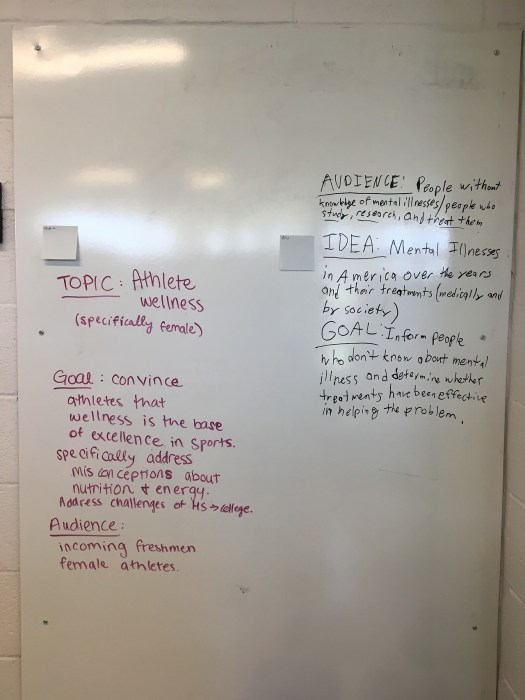 TOPIC: Athlete
wellness
(specifically female)
Goal: convince
athletes that
wellness is the base
of excellence in sports.
specifically address
misconceptions about
nutrition & energy.
Address challenges of HS→college.
Audience:
incoming freshmen
female athletes.
AUDIENCE: People without
knowledge of mental illnesses/people who
study, research, and treat them
IDEA: Mental Illnesses
in America over the years
and their treatments (medically and
by society)
GOAL: Inform people
who don't know about mental
illness and determine whether
treatments have been effective
in helping the problem.